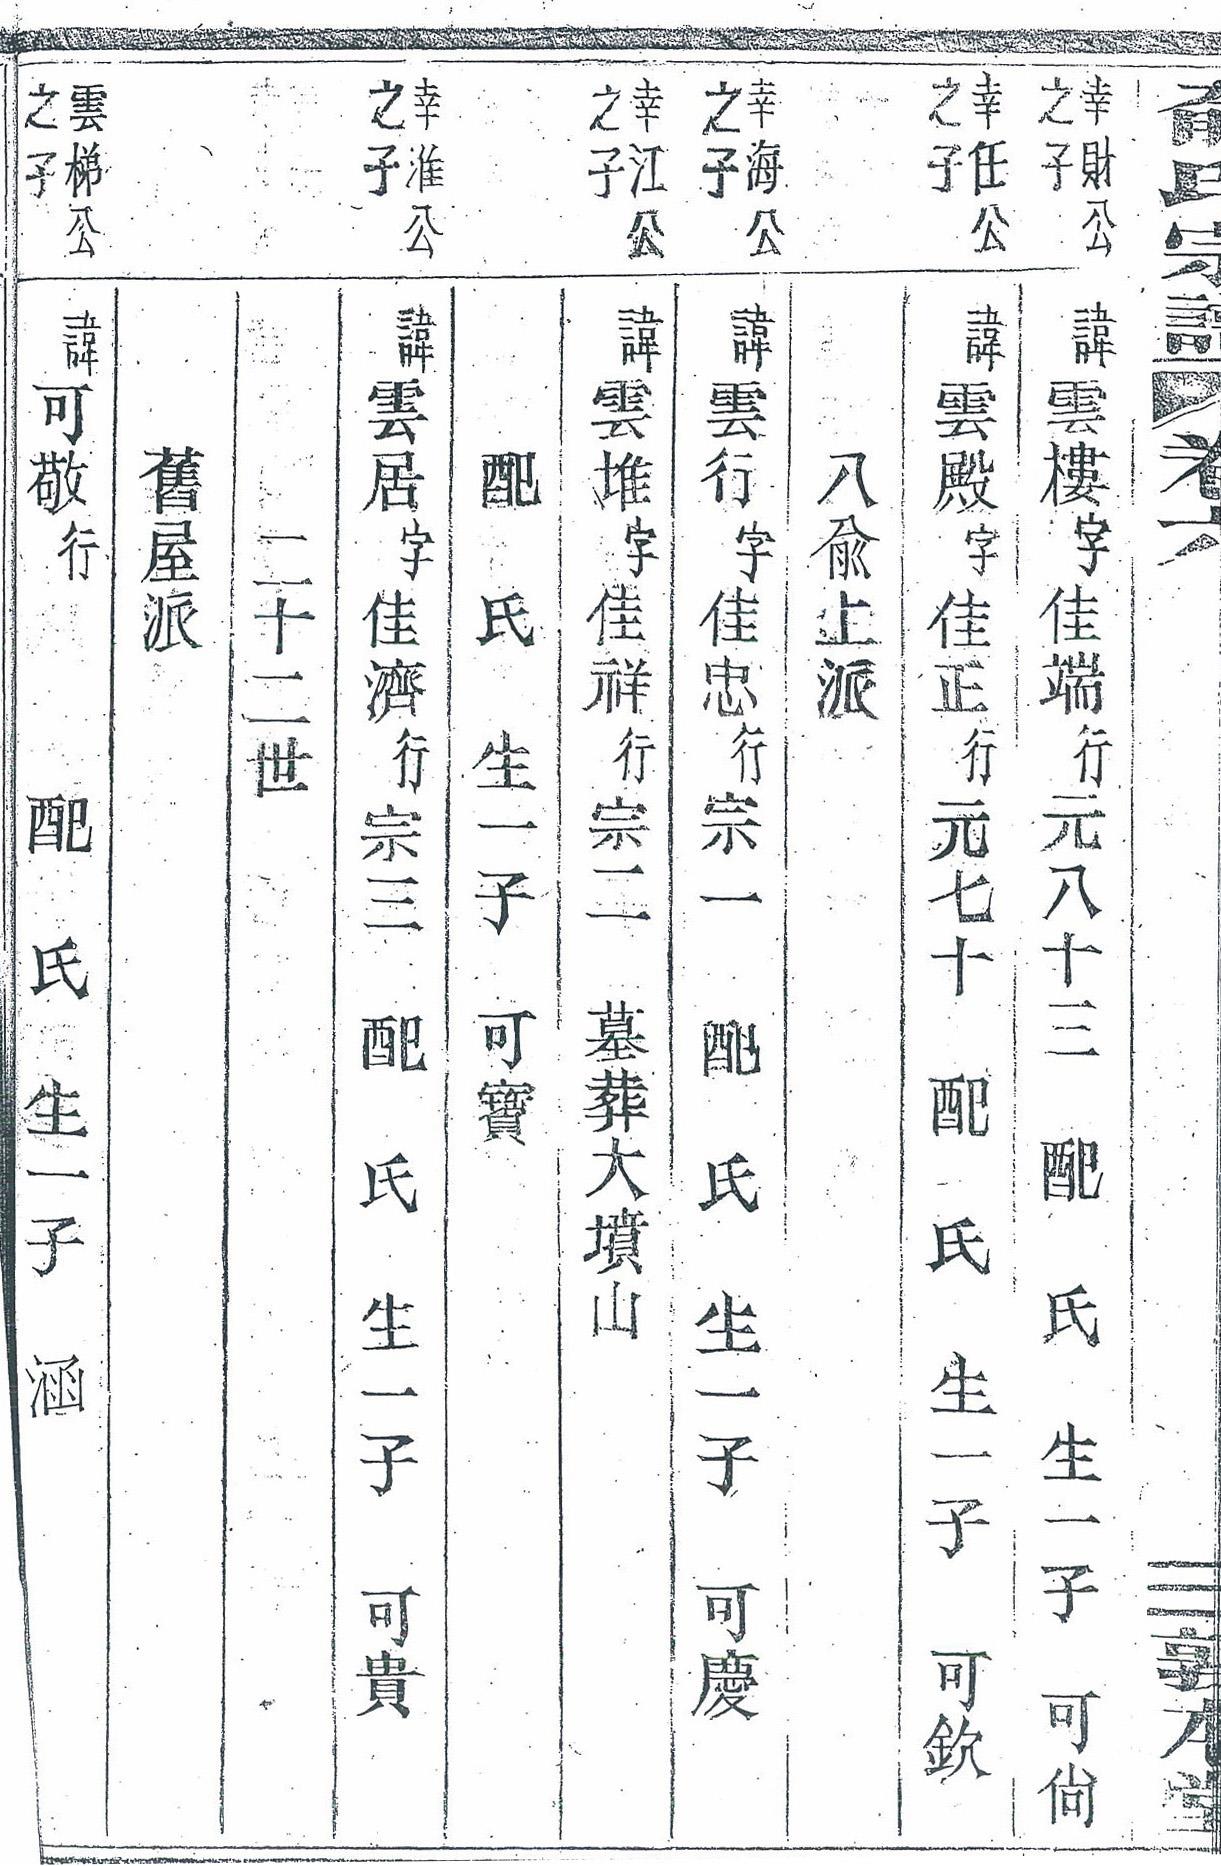 氏宗譜 卷六 三 敦本堂
幸財公之子 諱雲樓字佳端行元八十三 配 氏 生一子 可尙
幸任公之子 諱雲殿字佳正行元七十 配 氏 生一子 可欽
八俞上派
幸海公之子 諱雲行字佳忠行宗一 配 氏 生一子 可慶
幸江公之子 諱雲堆字佳祥行宗二 墓葬大墳山
配 氏 生一子 可寶
幸淮公之子 諱雲居字佳濟行宗三 配 氏 生一子 可貴
二十二世
舊屋派
雲梯公之子 諱可敬行 配 氏 生一子 涵